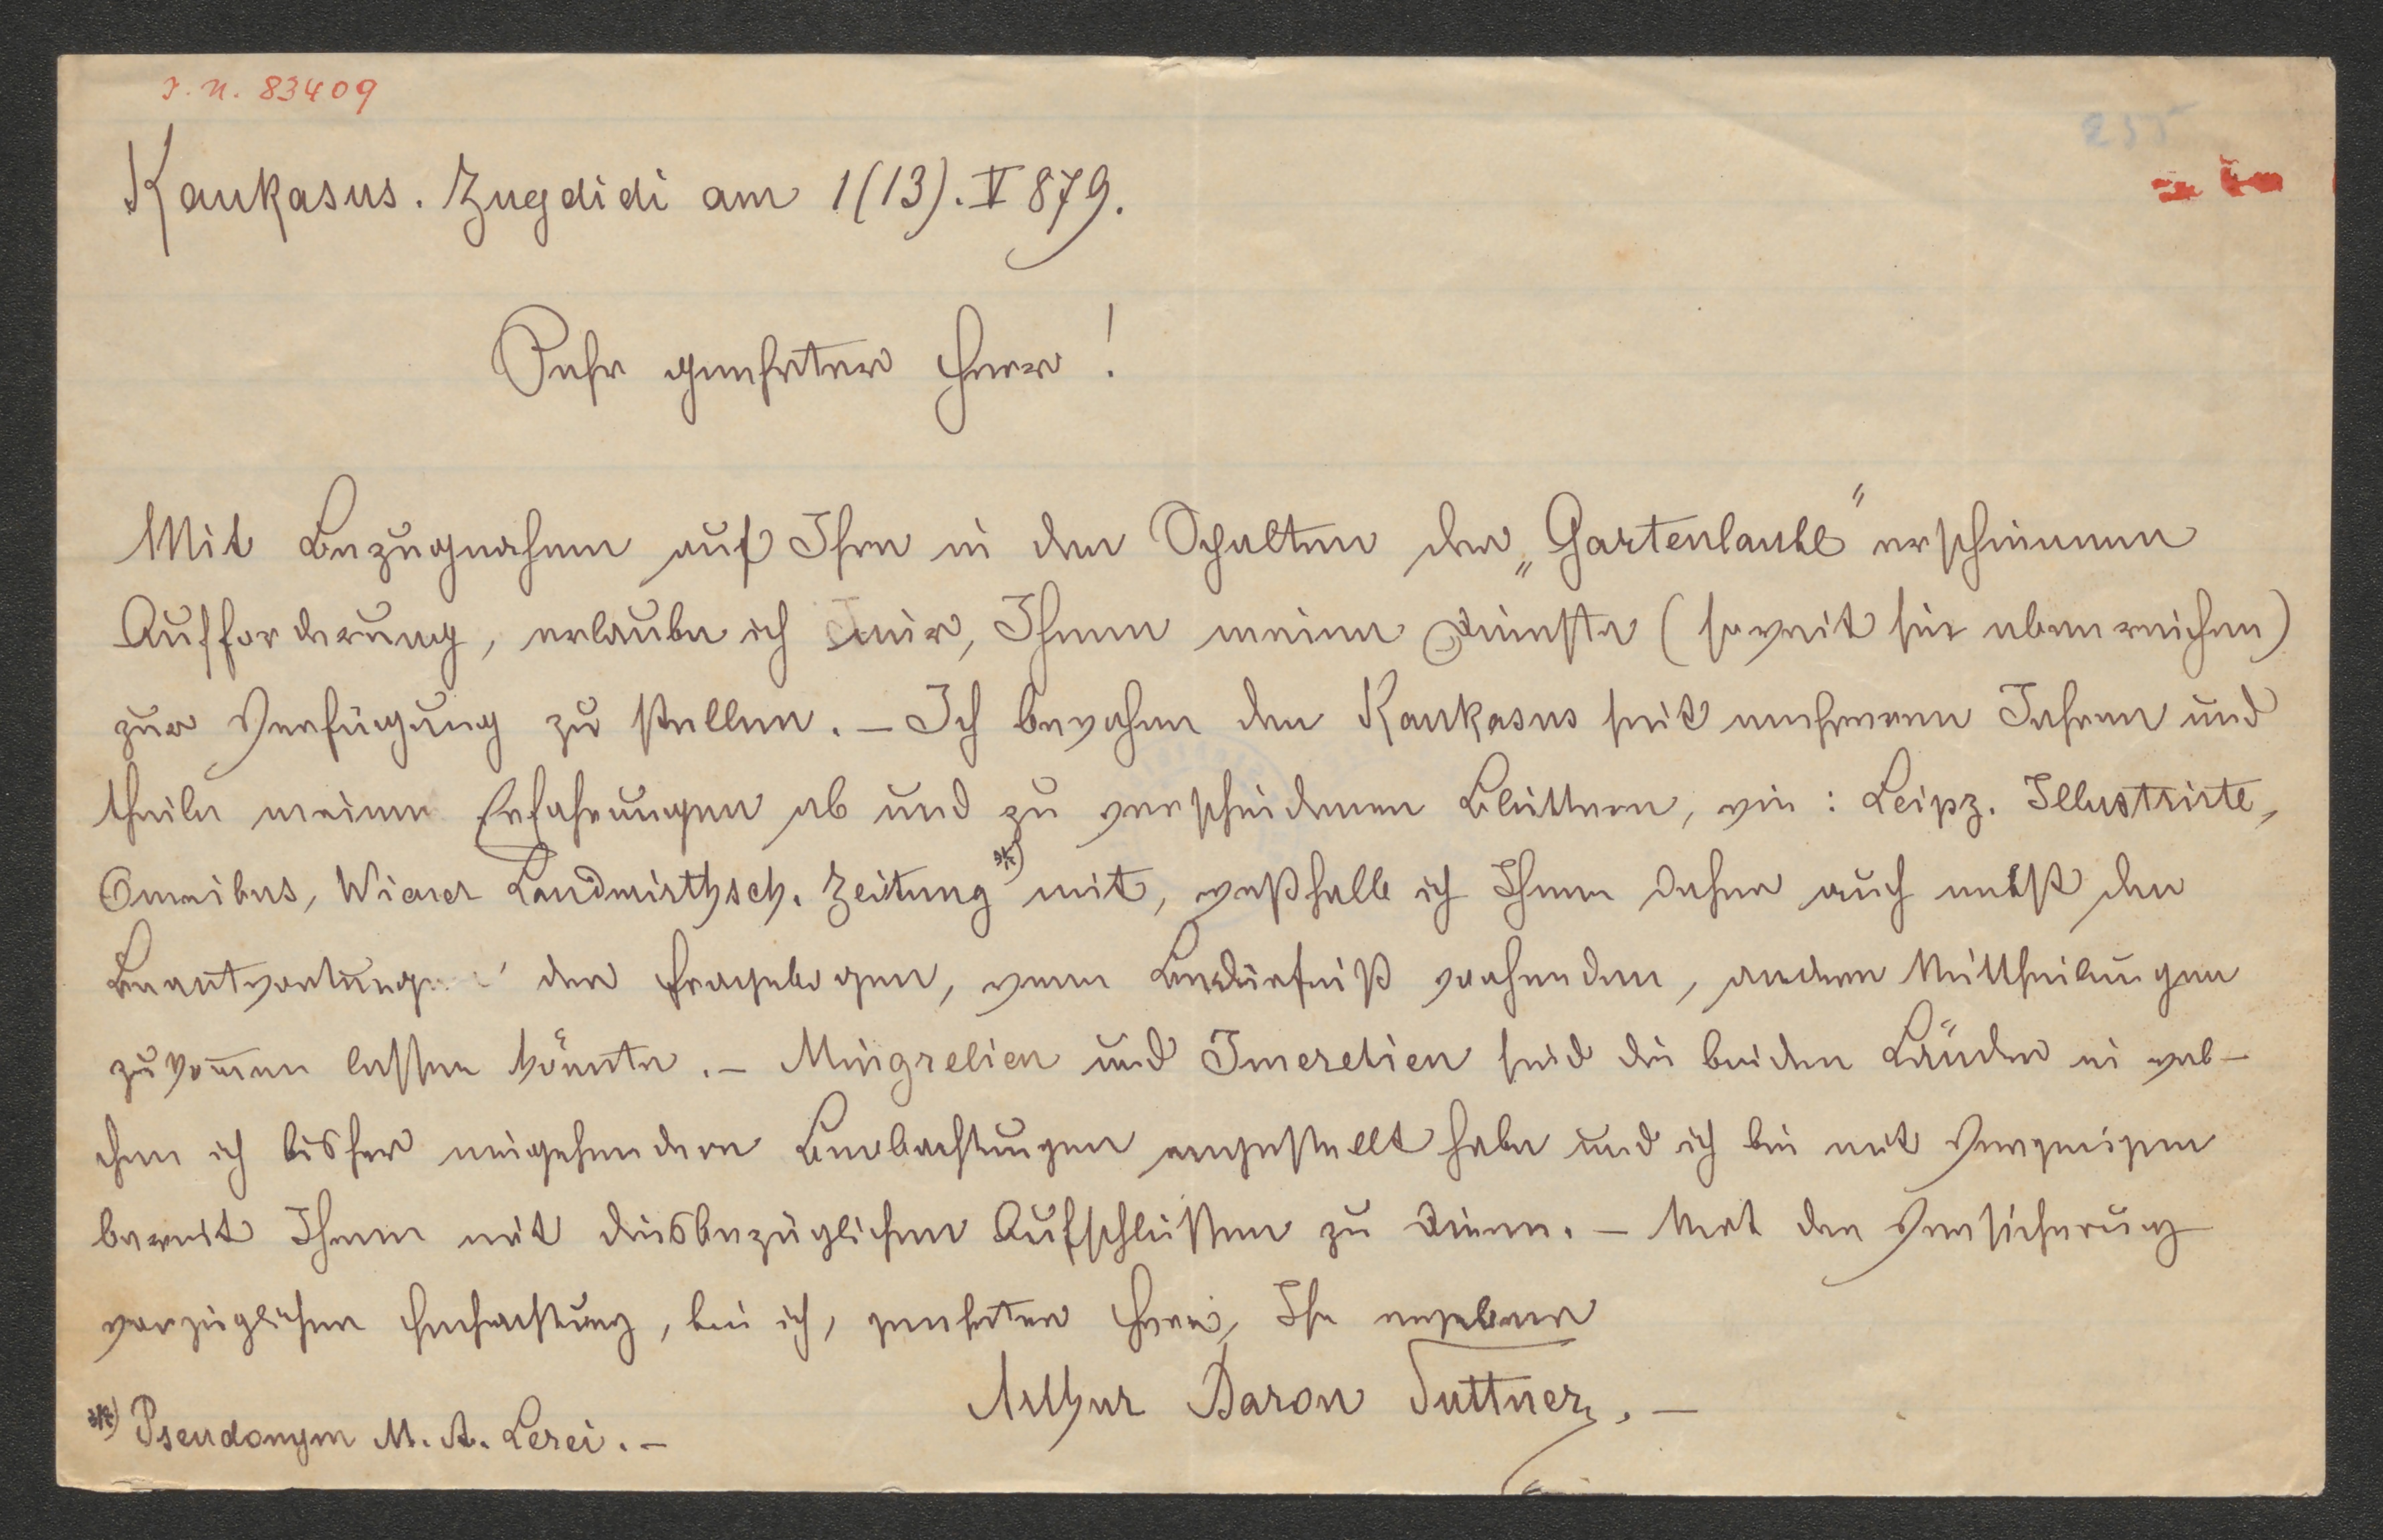 I. N. 83409
235
Kaukasus. Zugdidi am 1(13). V 879.
Sehr geehrter Herr!
Mit Bezugnahme auf Ihre in den Spalten der „Gartenlaube" erschienene
Aufforderung, erlaube ich mir, Ihnen meine Dienste (soweit sie eben reichen)
zur Verfügung zu stellen. – Ich bewohne den Kaukasus seit mehreren Jahren und
theile meine Erfahrungen ab und zu verschiedenen Blättern, wie: Leipz. Illustrirte,
Omnibus, Wiener Landwirthsch. Zeitung *) mit, weßhalb ich Ihnen daher auch nebst den
Beantwortungen der Fragebogen, wenn Bedürfniß vorhanden, andere Mittheilungen
zukom̅en lassen könnte. – Mingrelien und Imeretien sind die beiden Länder in wel-
chen ich bisher eingehendere Beobachtungen angestellt habe und ich bin mit Vergnügen
bereit Ihnen mit diesbezüglichen Aufschlüssen zu dienen. – Mit der Versicherung
vorzüglicher Hochachtung, bin ich, geehrter Herr, Ihr ergebener
Arthur Baron Suttner. –
*) Pseudonym M. A. Lerei. –